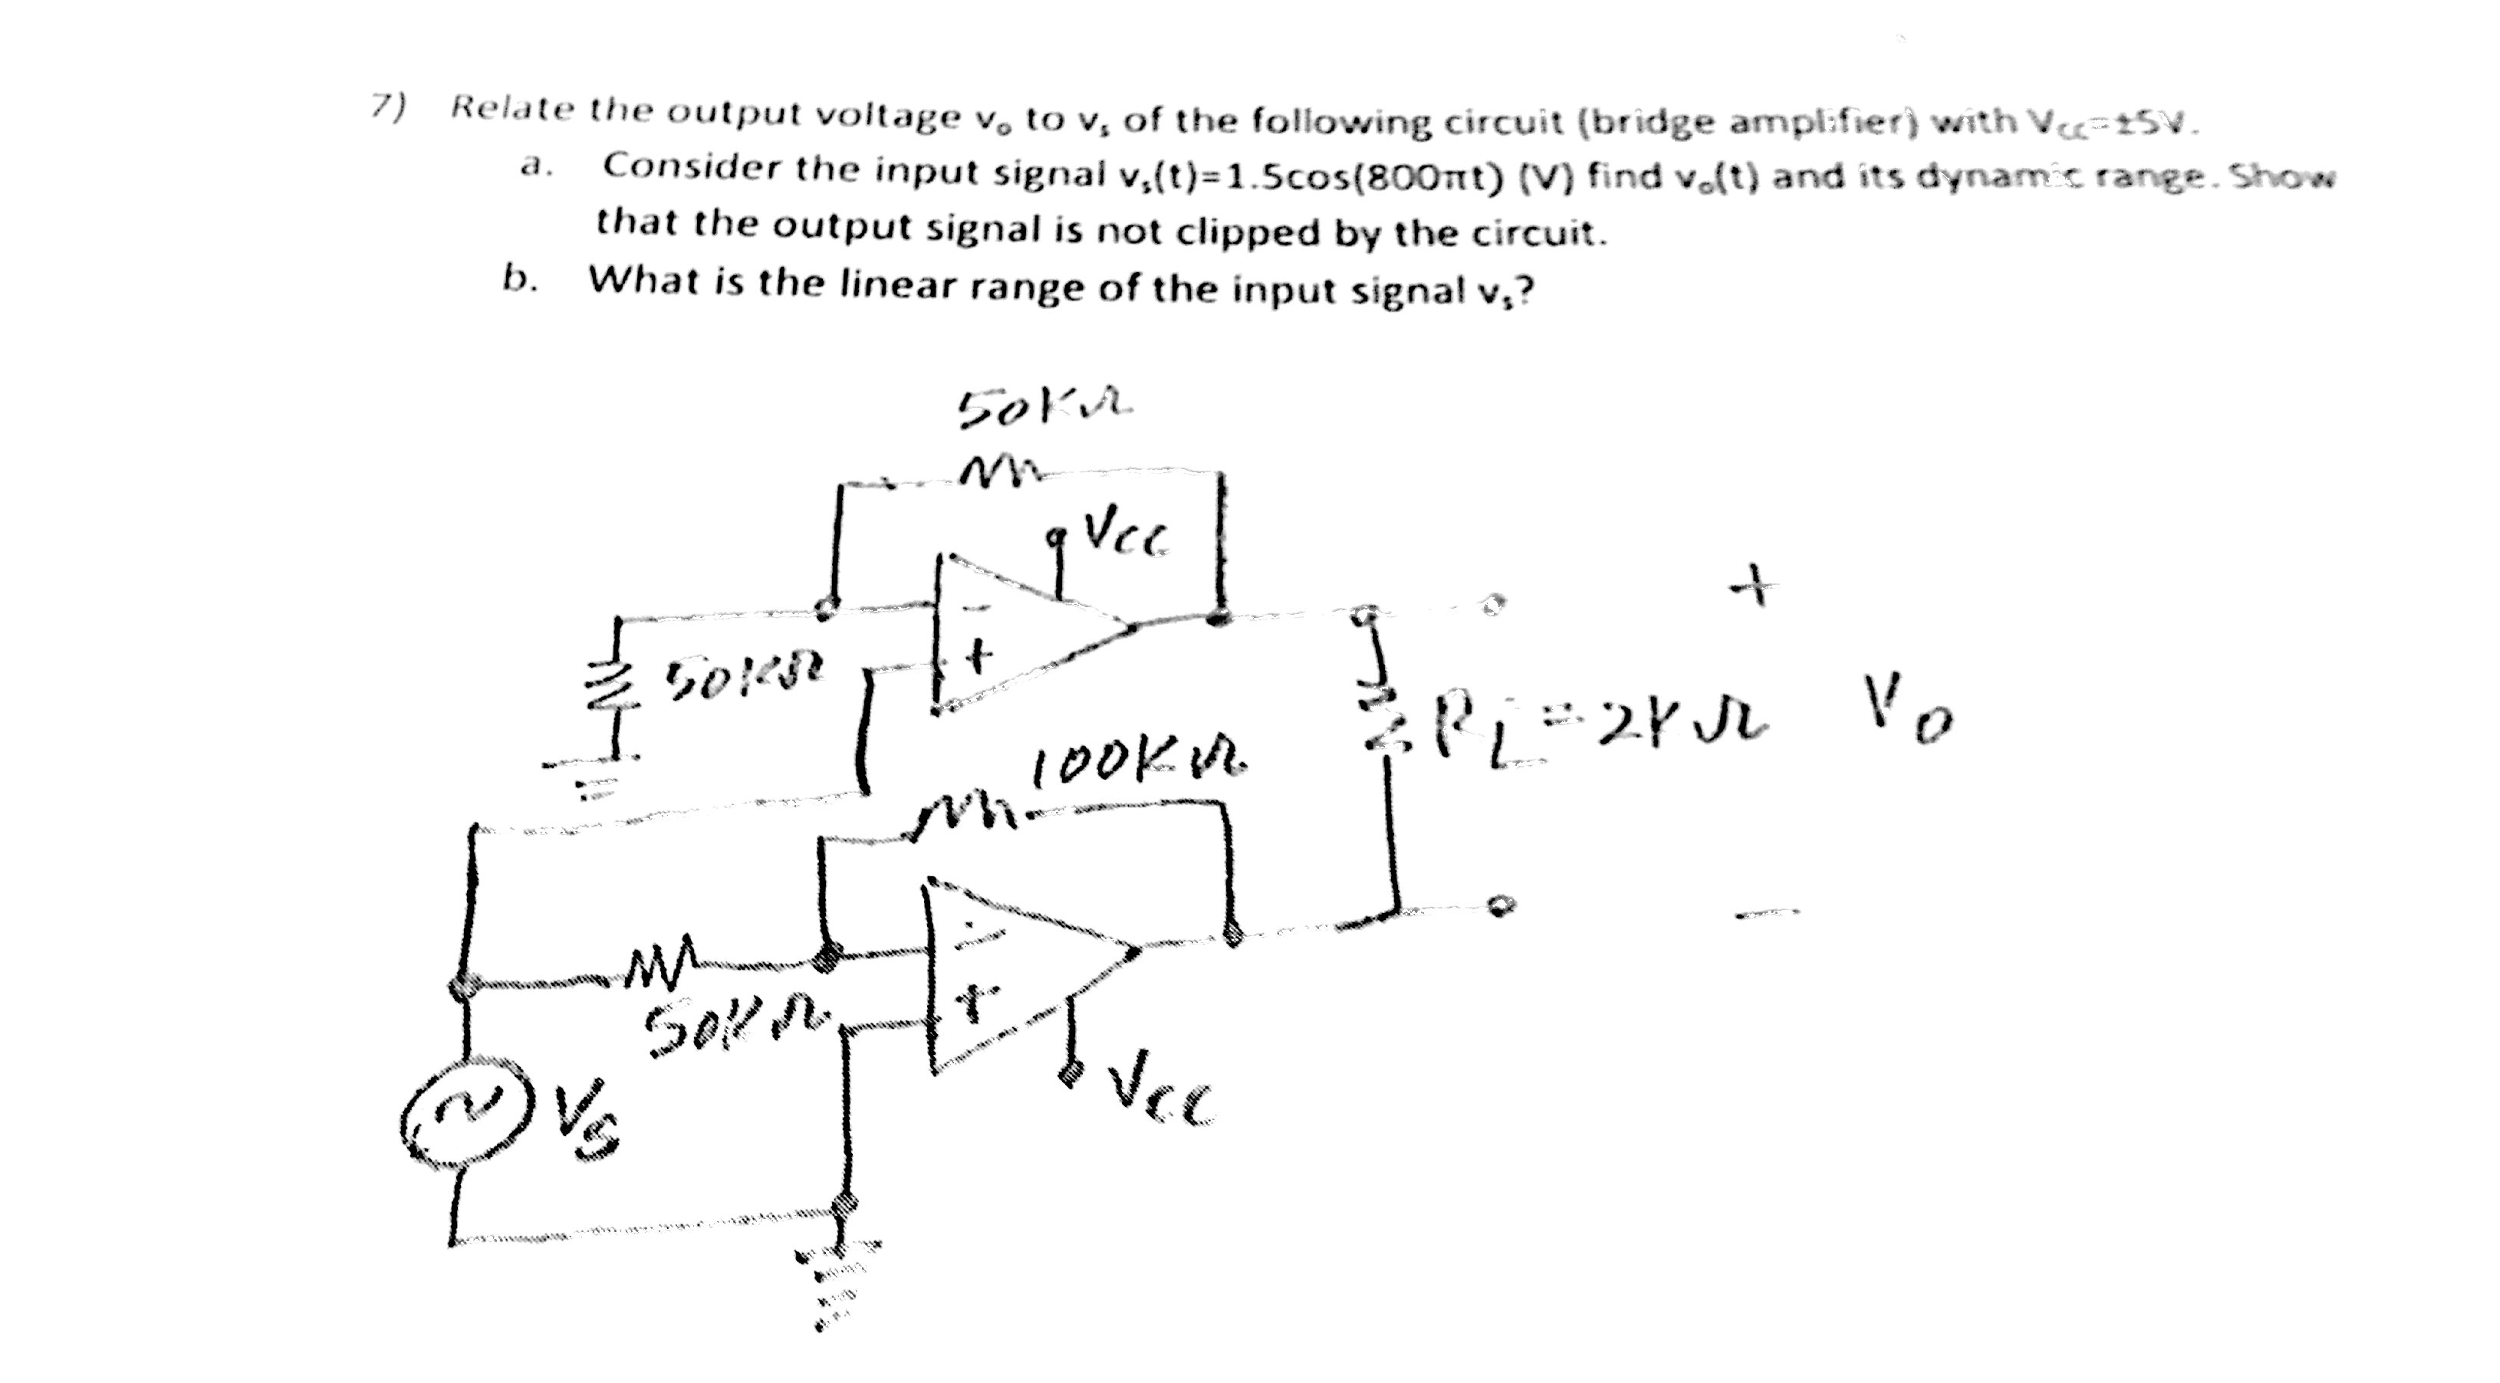 7) Relate the output voltage vₒ to vₛ of the following circuit (bridge amplifier) with V꜀꜀=±5V.
a. Consider the input signal vₛ(t)=1.5cos(800πt) (V) find vₒ(t) and its dynamic range. Show
that the output signal is not clipped by the circuit.
b. What is the linear range of the input signal vₛ?
50KΩ
Vcc
-
+
50KΩ
+
RL=2KΩ
Vo
100KΩ
-
+
-
50KΩ
Vs
Vcc